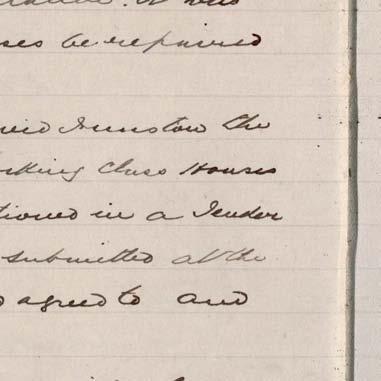 was
ses be repaired
the
rking Class Houses
tioned in a Tender
submitted at the
agreed to and